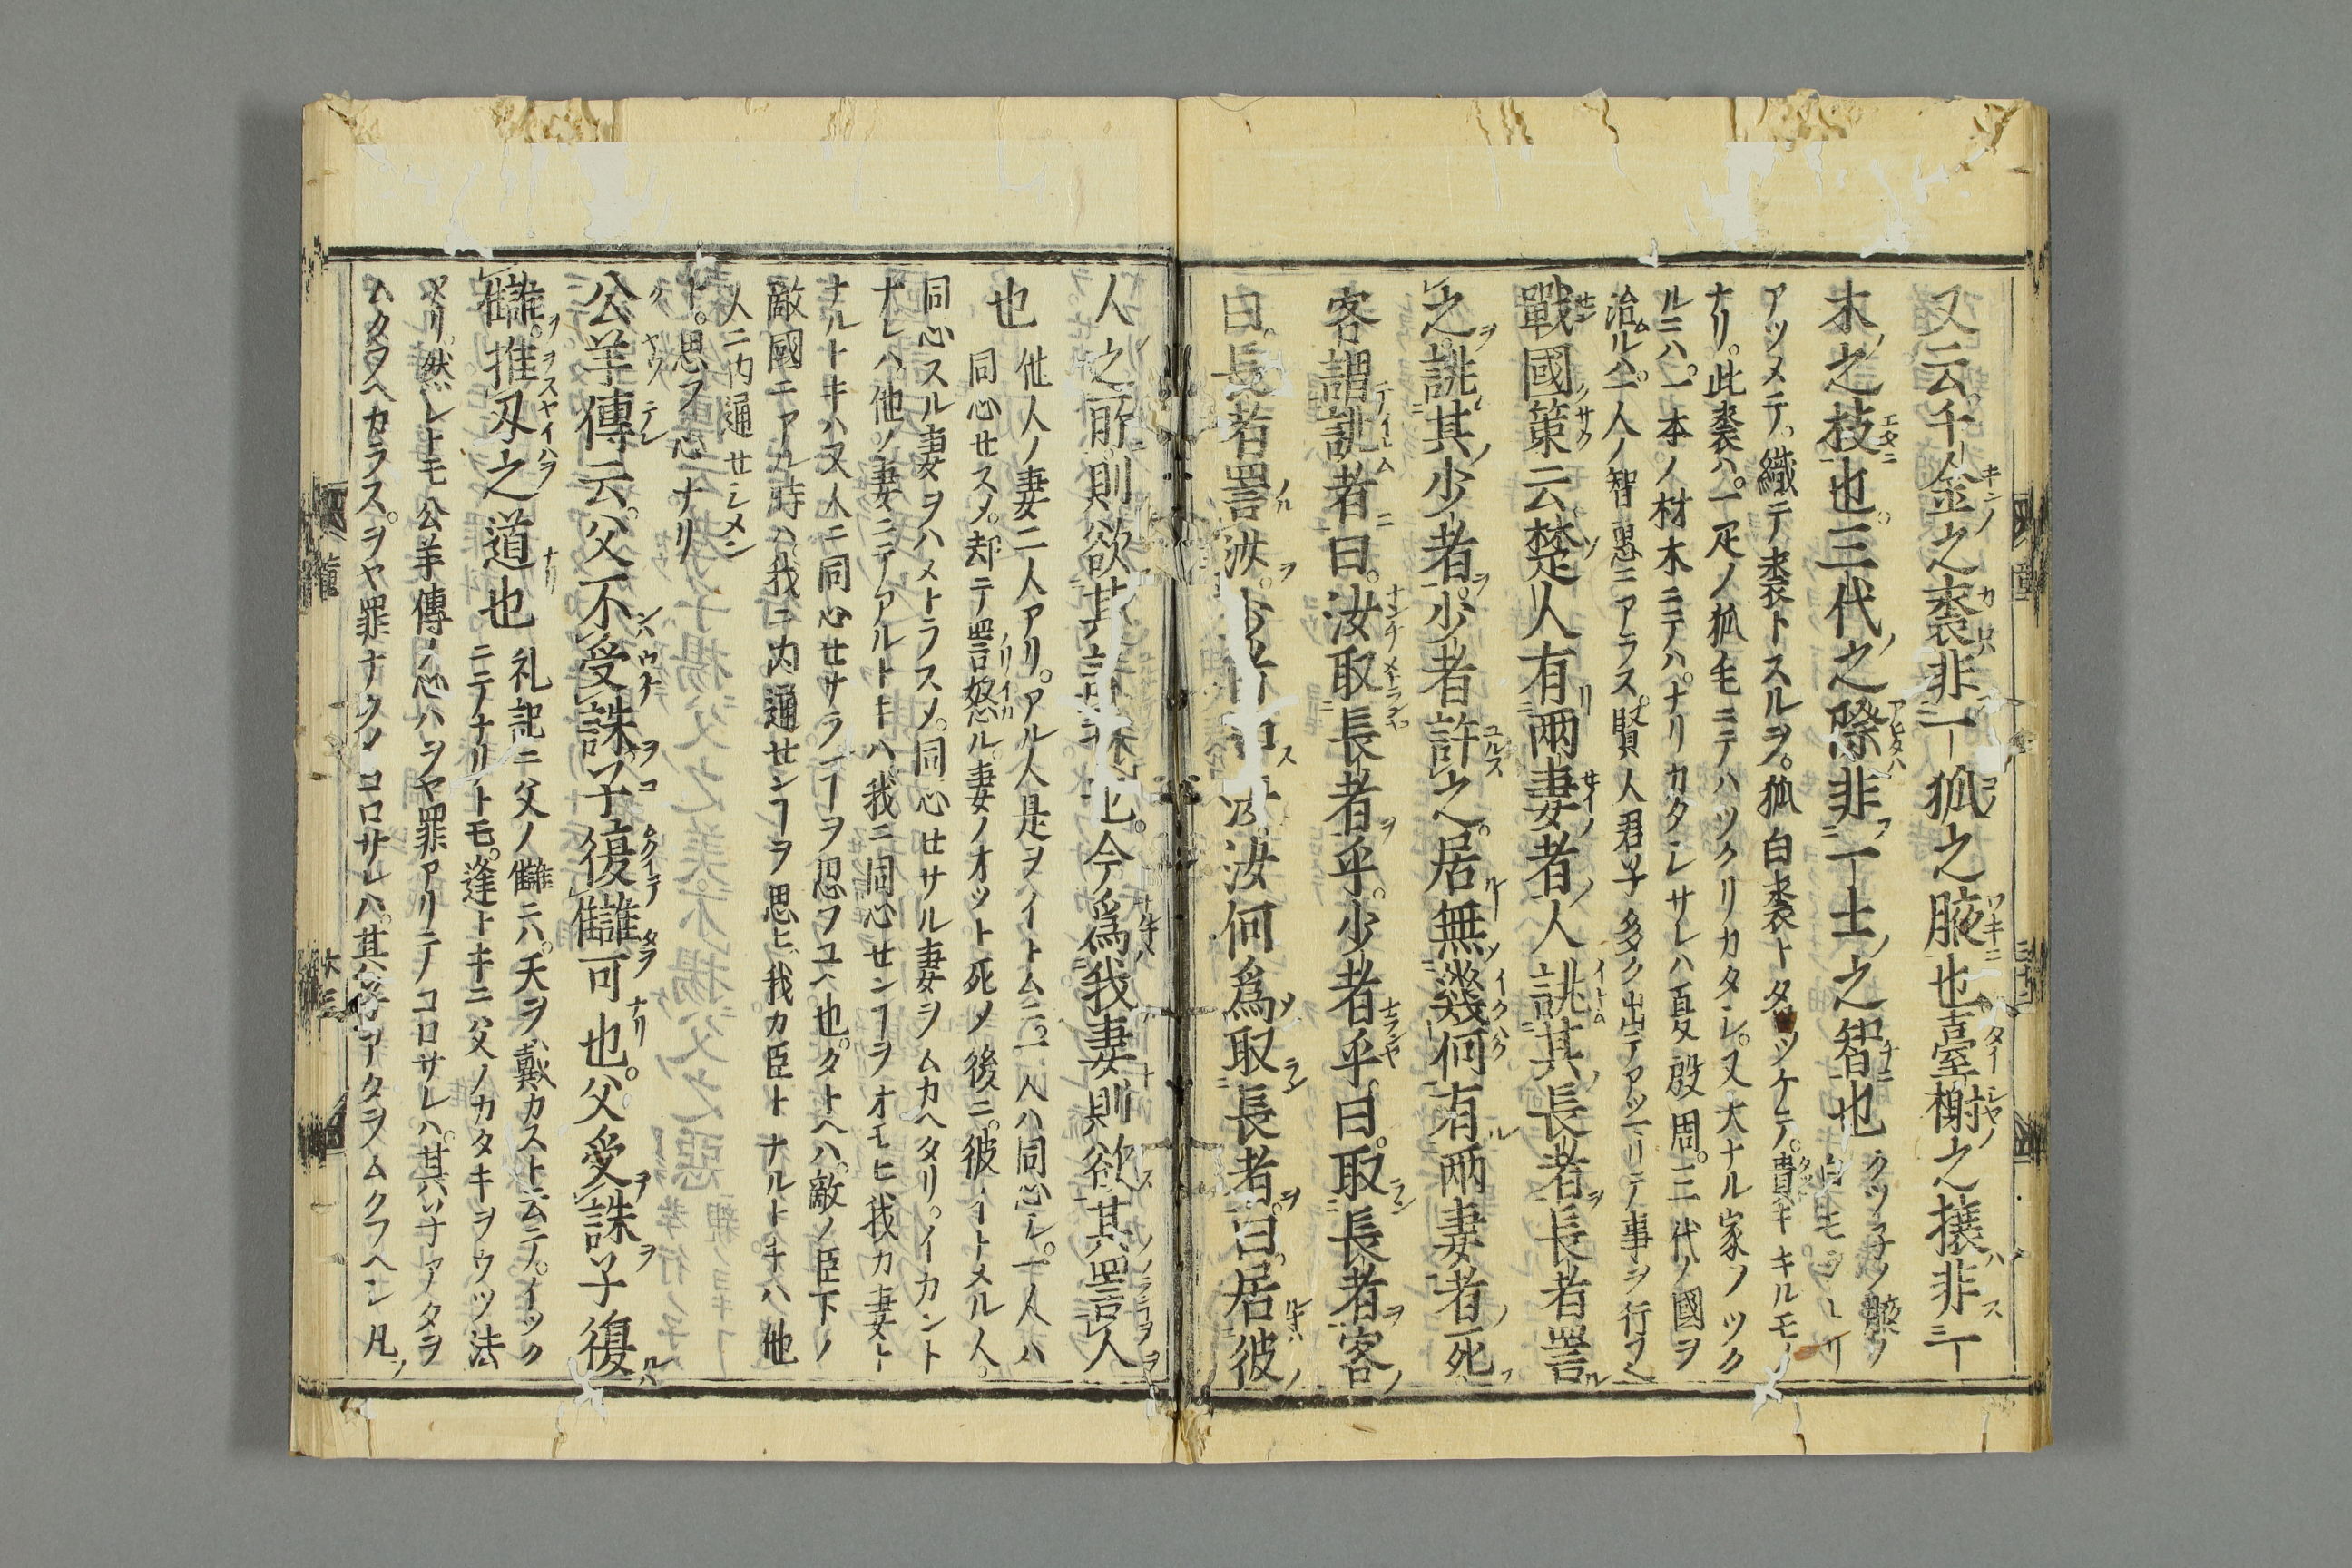 又云。千金之裘非一狐之腋也臺榭之榱非一
木之枝也。三代之際非一士之智也
アツメテ。織テ裘トスルヲ。狐白裘トタツケテ。貴キキルモノ
ナリ。此裘ハ。一疋ノ狐毛ニテハツクリカタシ。又大ナル家ノツク
ルニハ。一本ノ材木ニテハ。ナリカタシサレハ夏殷周。三代ノ國ヲ
治ルハ。一人ノ智愚ニアラス。賢人君子多ク出テアツマリテ事ヲ行フ
戰國策云楚人有兩妻者人誂其長者長者詈
之。誂其少者。少者許之。居無幾何有兩妻者死
客謂誂者曰。汝取長者乎。少者乎。曰。取長者客
曰。長者詈汝。汝何爲取長者。曰。居彼
人之所則欲其 也。今爲我妻則欲其詈人
也 他人ノ妻二人アリ。アル人是ヲイトムニ。一人ハ同心シ。一人ハ
同心セスメ。却テ詈怒ル。妻ノオット死メ後ニ。彼イトメル人。
同心スル妻ヲハメトラスメ。同心セサル妻ヲムカヘタリ。イカント
ナレハ。他ノ妻ニテアルトキハ我ニ同心センヿヲオモヒ我カ妻ト
ナルトキハ又人ニ同心セサランヿヲ思フユヘ也。タトヘハ。敵ノ臣下ノ
敵國ニアル時ハ。我ニ内通センヿヲ思ヒ。我カ臣トナルトキハ他
人ニ内通セシメン
ト。思フ心ナリ
公羊傳云。父不受誅子復讎可也。父受誅子復
讎。推刄之道也 礼記ニ父ノ讎ニハ。天ヲハ戴カスト云テ。イツク
ニテナリトモ。逢トキニ父ノカタキヲウツ法
ナリ。然レトモ公羊傳ノ心ハヲヤ罪アリテコロサレハ。其ハ子アタラ
ムクフヘカラス。ヲヤ罪ナクメコロサレハ。其 アタヲムクフヘシ凡ソ